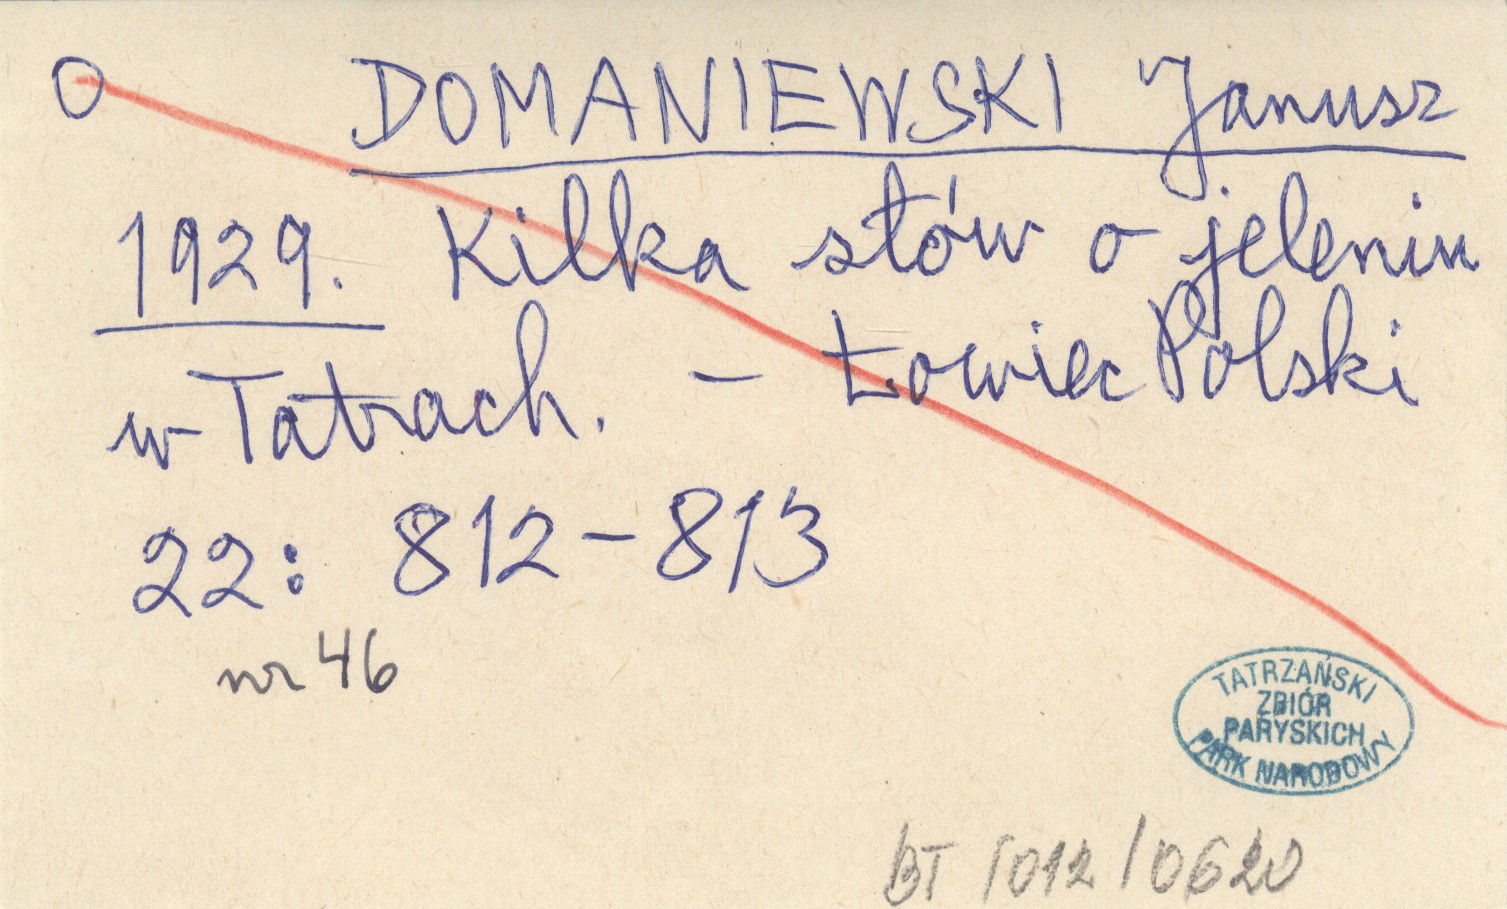 O DOMANIEWSKI Janusz
1929. Kilka słów o jeleniu
w Tatrach. – Łowiec Polski
22: 812–813
nr 46
TATRZAŃSKI
ZBIÓR
PARYSKICH
PARK NARODOWY
BT /012/0620